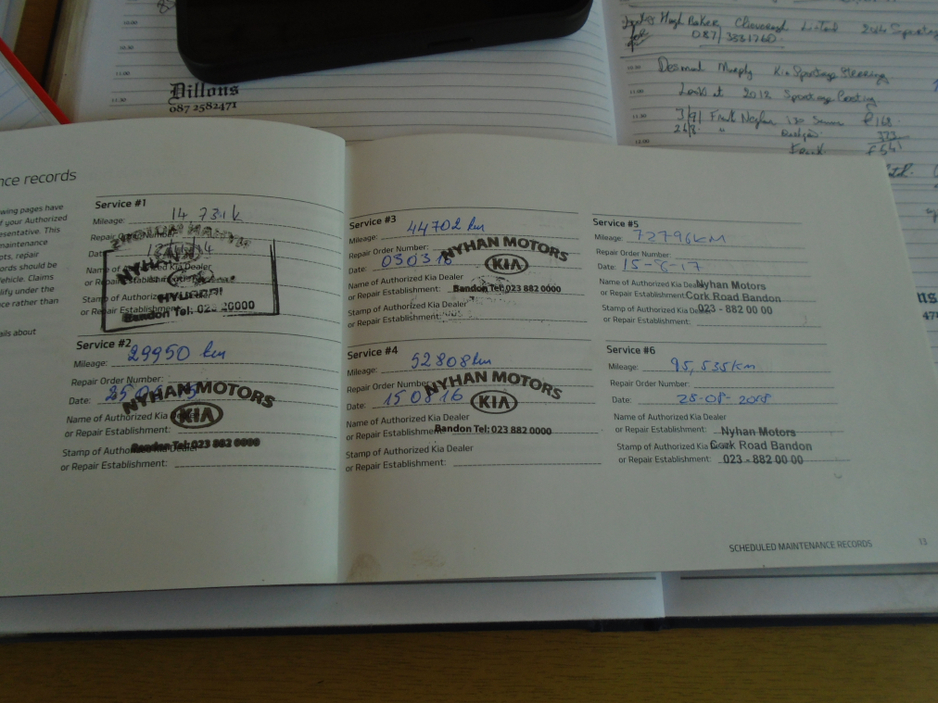 Dillons
087 2582471
Hugh Baker
087/3331760
Desmond Murphy Kia Sportage
Look at 2012 Sportage
11.00
11.30
nce records
wing pages have
f your Authorized
esentative. This
maintenance
ots, repair
ords should be
ehicle. Claims
lify under the
ce rather than
ails about
Service #1
Mileage: 14 731k
Repair Order Number:
Date:
Name of Authorized Kia Dealer
or Repair Establishment:
Stamp of Authorized Kia Dealer
or Repair Establishment:
HYUNDAI
Bandon Tel: 023 0000
Service #2
Mileage: 29950 km
Repair Order Number:
NYHAN MOTORS
Date:
KIA
Name of Authorized Kia Dealer
or Repair Establishment:
Bandon Tel:023 882 0000
Stamp of Authorized Kia Dealer
or Repair Establishment:
Service #3
Mileage: 44702 km
Repair Order Number:
NYHAN MOTORS
Date: 030316
KIA
Name of Authorized Kia Dealer
or Repair Establishment:
Bandon Tel:023 882 0000
Stamp of Authorized Kia Dealer
or Repair Establishment:
Service #4
Mileage: 52808km
Repair Order Number:
NYHAN MOTORS
Date: 150816
KIA
Name of Authorized Kia Dealer
or Repair Establishment:
Bandon Tel:023 882 0000
Stamp of Authorized Kia Dealer
or Repair Establishment:
Service #5
Mileage: 72796KM
Repair Order Number:
Date: 15-8-17
Name of Authorized Kia Dealer
Nyhan Motors
or Repair Establishment:
Cork Road Bandon
Stamp of Authorized Kia Dealer
023 - 882 00 00
or Repair Establishment:
Service #6
Mileage: 95,535km
Repair Order Number:
Date: 28-08-2018
Name of Authorized Kia Dealer
or Repair Establishment:
Nyhan Motors
Stamp of Authorized Kia
Cork Road Bandon
or Repair Establishment:
023 - 882 00 00
SCHEDULED MAINTENANCE RECORDS 13